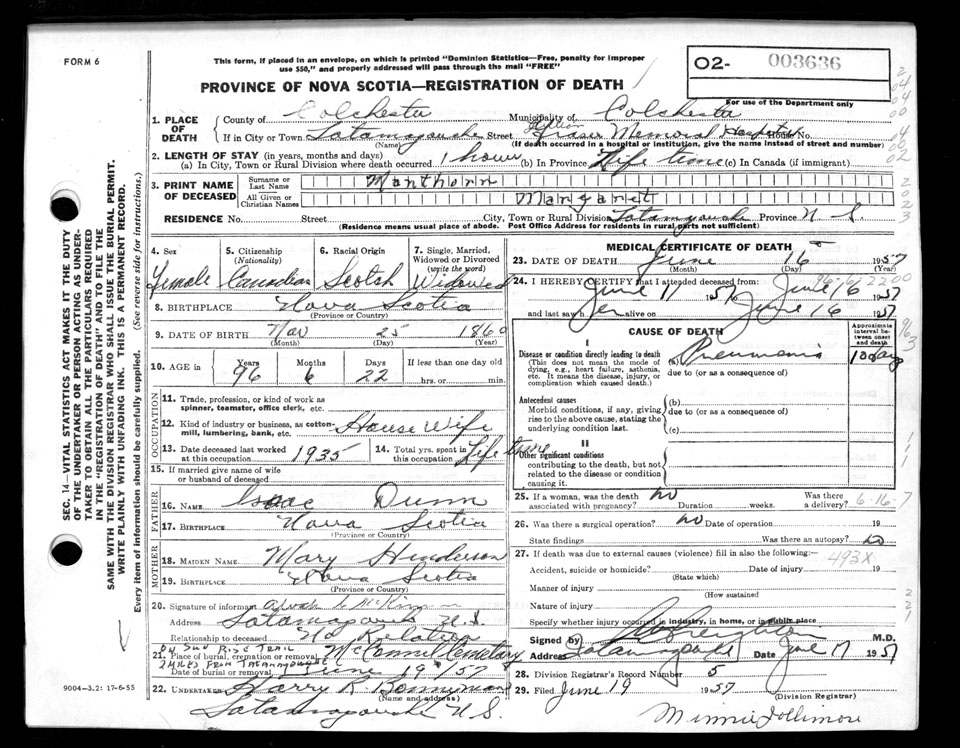 FORM 6
This form, if placed in an envelope, on which is printed "Dominion Statistics—Free, penalty for improper
use $50," and properly addressed will pass through the mail "FREE"
O2- 003636
PROVINCE OF NOVA SCOTIA—REGISTRATION OF DEATH
For use of the Department only
1. PLACE OF DEATH
County of Colchester Municipality of Colchester
If in City or Town Tatamagouche Street Memorial Hospital House No.
(Name) (If death occurred in a hospital or institution, give the name instead of street and number)
2. LENGTH OF STAY (in years, months and days)
(a) In City, Town or Rural Division where death occurred 1 hour (b) In Province Life time (c) In Canada (if immigrant)
3. PRINT NAME OF DECEASED
Surname or Last Name Manthorn
All Given or Christian Names Margaret
RESIDENCE No. Street City, Town or Rural Division Tatamagouche Province N S.
(Residence means usual place of abode. Post Office Address for residents in rural parts not sufficient)
4. Sex Female
5. Citizenship (Nationality) Canadian
6. Racial Origin Scotch
7. Single, Married, Widowed or Divorced (write the word) Widowed
8. BIRTHPLACE Nova Scotia
(Province or Country)
9. DATE OF BIRTH Nov 25 1860
(Month) (Day) (Year)
10. AGE in Years 96 Months 6 Days 22 If less than one day old hrs. or min.
OCCUPATION
11. Trade, profession, or kind of work as spinner, teamster, office clerk, etc.
12. Kind of industry or business, as cotton-mill, lumbering, bank, etc. House Wife
13. Date deceased last worked at this occupation 1935
14. Total yrs. spent in this occupation Life time
15. If married give name of wife or husband of deceased
FATHER
16. NAME Isaac Dunn
17. BIRTHPLACE Nova Scotia
(Province or Country)
MOTHER
18. MAIDEN NAME Mary Henderson
19. BIRTHPLACE Nova Scotia
(Province or Country)
20. Signature of informant
Address Tatamagouche N.S.
Relationship to deceased No Relation
ON SUN RISE TRAIL
21. Place of burial, cremation or removal McConnel Cemetary
2 MILES FROM TATAMAGOUCHE
Date of burial or removal June 19 1957
22. UNDERTAKER Harry R. Bonnyman
(Name and address)
Tatamagouche N S.
MEDICAL CERTIFICATE OF DEATH
23. DATE OF DEATH June 16 1957
(Month) (Day) (Year)
24. I HEREBY CERTIFY that I attended deceased from
June 11 1957 to June 16 1957
and last saw her alive on June 16 1957
CAUSE OF DEATH
Approximate interval between onset and death
I
Disease or condition directly leading to death (a) Pneumonia 10 days
(This does not mean the mode of dying, e.g., heart failure, asthenia, etc. It means the disease, injury, or complication which caused death.)
due to (or as a consequence of)
Antecedent causes (b)
Morbid conditions, if any, giving rise to the above cause, stating the underlying condition last.
due to (or as a consequence of)
(c)
II
Other significant conditions
contributing to the death, but not related to the disease or condition causing it.
25. If a woman, was the death associated with pregnancy? No Duration weeks. Was there a delivery?
6-16-7
26. Was there a surgical operation? No Date of operation 19
State findings Was there an autopsy? No
27. If death was due to external causes (violence) fill in also the following:
493X
Accident, suicide or homicide? Date of injury 19
(State which)
Manner of injury
(How sustained
Nature of injury
Specify whether injury occurred in industry, in home, or in public place
Signed by Creighton M.D.
Address Tatamagouche Date June 17 1957
28. Division Registrar's Record Number 5
29. Filed June 19 1957
(Division Registrar)
Minnie Jollimore
9004—3.2: 17-6-55
SEC. 14—VITAL STATISTICS ACT MAKES IT THE DUTY
OF THE UNDERTAKER OR PERSON ACTING AS UNDER-
TAKER TO OBTAIN ALL THE PARTICULARS REQUIRED
IN THE "REGISTRATION OF DEATH" AND TO FILE THE
SAME WITH THE DIVISION REGISTRAR WHO SHALL ISSUE THE BURIAL PERMIT.
WRITE PLAINLY WITH UNFADING INK. THIS IS A PERMANENT RECORD.
Every item of Information should be carefully supplied. (See reverse side for instructions.)